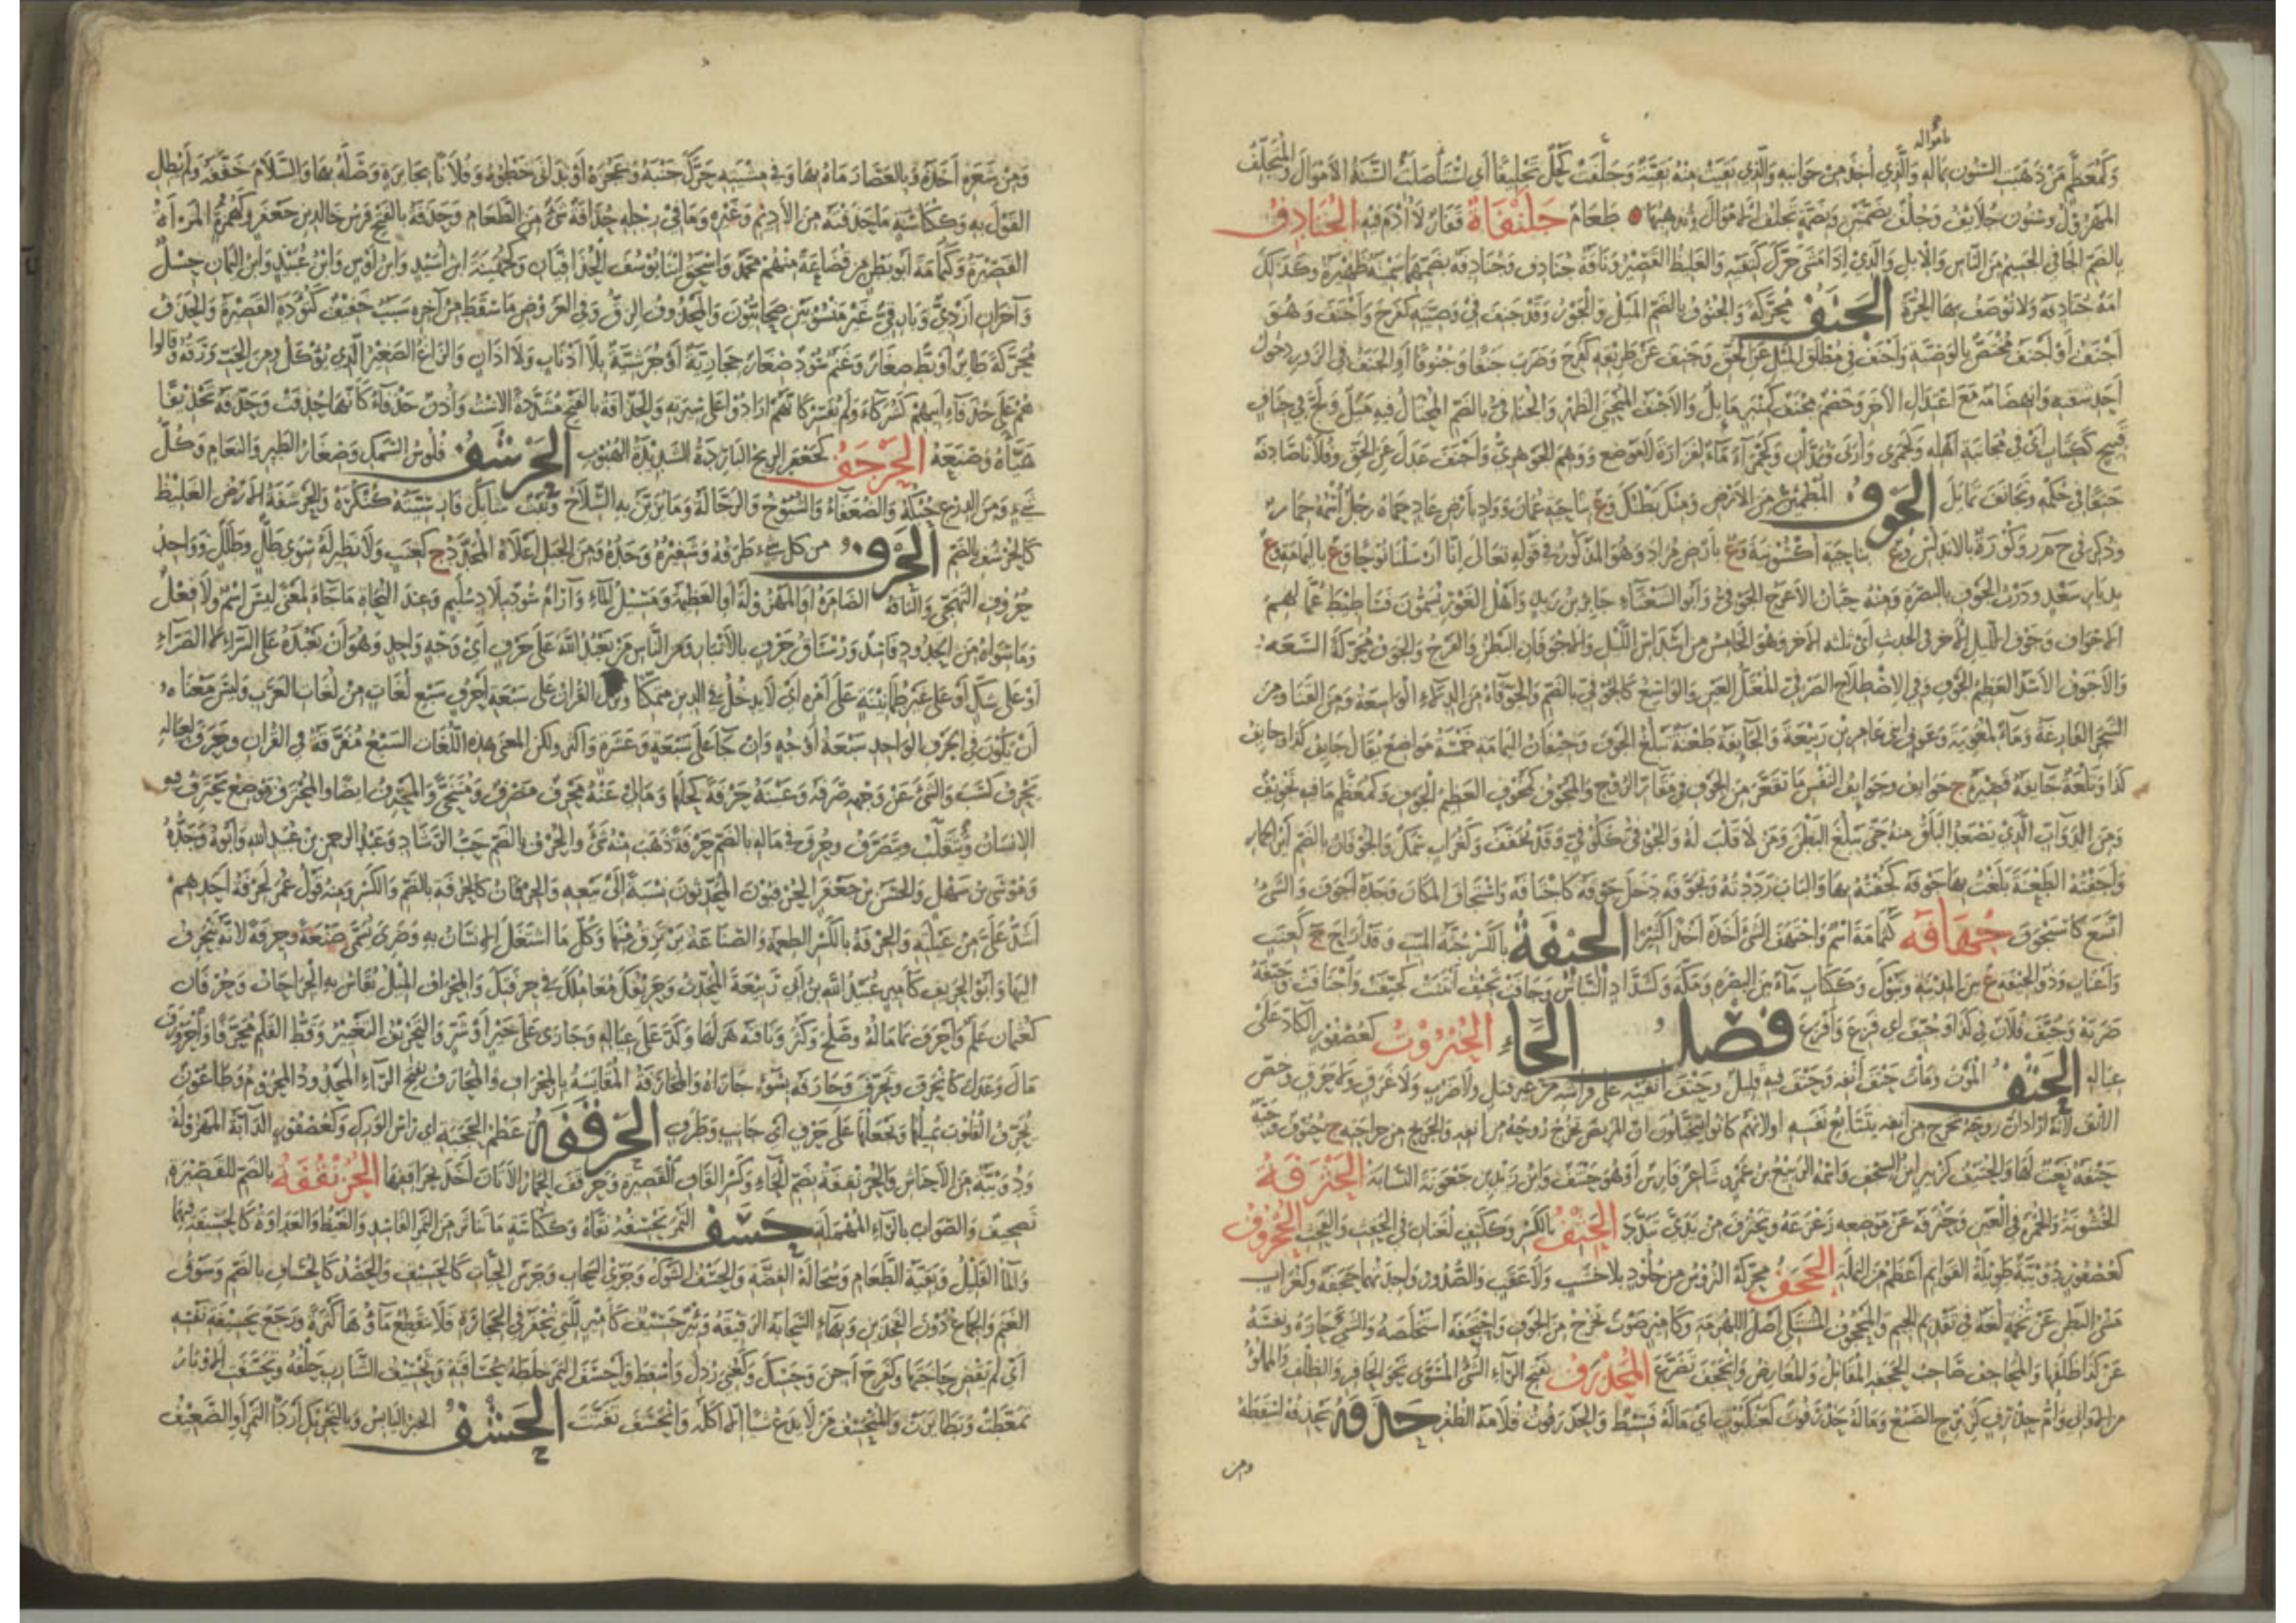 وَكَمُعَظَّمٍ مَنْ ذَهَبَ السِّنُونَ بِمَالِهِ وَالَّذِي أُخِذَ مِنْ جَوَانِبِهِ وَالَّذِي بَقِيَتْ مِنْهُ بَقِيَّةٌ وَجَلَّفَتْ كَحْلُ تَجْلِيفًا أَيِ اسْتَأْصَلَتِ السَّنَةُ الأَمْوَالَ وَالْمُتَجَلِّفُ
بأمواله
الْمَهْزُولُ وَسِنُونَ جَلَائِفُ وَجُلُفٌ بِضَمَّتَيْنِ وَبِضَمَّةٍ تَجْلُفُ الأَمْوَالَ وَتُذْهِبُهَا طَعَامٌ جَلَنْفَاةٌ قَفَارٌ لَا أُدْمَ فِيهِ الْجُنَادِفُ
بِالضَّمِّ الْجَافِي الْجَسِيمُ مِنَ النَّاسِ وَالْإِبِلِ وَالَّذِي إِذَا مَشَى حَرَّكَ كَتِفَيْهِ وَالْغَلِيظُ الْقَصِيرُ وَنَاقَةٌ جُنَادِفٌ وَجُنَادِفَةٌ بِضَمِّهِمَا سَمِينَةٌ ظَهِيرَةٌ وَكَذَلِكَ
أَمَةٌ جُنَادِفَةٌ وَلَا تُوصَفُ بِهَا الْحُرَّةُ الْجَنَفُ مُحَرَّكَةً وَالْجُنُوفُ بِالضَّمِّ الْمَيْلُ وَالْجَوْرُ وَقَدْ جَنِفَ فِي وَصِيَّتِهِ كَفَرِحَ وَأَجْنَفَ وَهُوَ
أَجْنَفُ أَوْ أَجْنَفَ مُخْتَصٌّ بِالْوَصِيَّةِ وَجَنِفَ فِي مُطْلَقِ الْمَيْلِ عَنِ الْحَقِّ وَجَنِفَ عَنْ طَرِيقِهِ كَفَرِحَ وَضَرَبَ جَنَفًا وَجُنُوفًا أَوِ الْجَنَفُ فِي الزَّوْرِ دُخُولُ
أَحَدِ شِقَّيْهِ وَانْهِضَامُهُ مَعَ اعْتِدَالِ الآخَرِ وَخَصْمٌ مِجْنَفٌ كَمِنْبَرٍ مَائِلٌ وَالأَجْنَفُ الْمُنْحَنِي الظَّهْرِ وَالْجُنَافِيُّ بِالضَّمِّ الْمُخْتَالُ فِيهِ مَيْلٌ وَلَجَّ فِي جِنَافٍ
قَبِيحٍ كَكِتَابٍ أَيْ فِي مُجَانَبَةِ أَهْلِهِ وَكَجَمَزَى وَأَرَبَى وَيُمَدَّانِ وَكَحَمْرَاءَ مَاءٌ لِفَزَارَةَ لَا مَوْضِعٌ وَوَهِمَ الْجَوْهَرِيُّ وَأَجْنَفَ عَدَلَ عَنِ الْحَقِّ وَفُلَانًا صَادَفَهُ
جَنِفًا فِي حُكْمِهِ وَتَجَانَفَ تَمَايَلَ الْجَوْفُ الْمُطْمَئِنُّ مِنَ الأَرْضِ وَمِنْكَ بَطْنُكَ وَع بِنَاحِيَةِ عُمَانَ وَوَادٍ بِأَرْضِ عَادٍ حَمَاهُ رَجُلٌ اسْمُهُ حِمَارٌ
وَذُكِرَ فِي ح م ر وَكُورَةٌ بِالأَنْدَلُسِ وَع بِنَاحِيَةِ أُكْشُونِيَةَ وَع بِأَرْضِ مُرَادٍ وَهُوَ الْمَذْكُورُ فِي قَوْلِهِ تَعَالَى إِنَّا أَرْسَلْنَا نُوحًا وَع بِالْيَمَامَةِ وَع
بِدِيَارِ سَعْدٍ وَدَرْبُ الْجَوْفِ بِالْبَصْرَةِ وَمِنْهُ حَيَّانُ الأَعْرَجُ الْجَوْفِيُّ وَأَبُو الشَّعْثَاءِ جَابِرُ بْنُ زَيْدٍ وَأَهْلُ الْغَوْرِ يُسَمُّونَ فَسَاطِيطَ عُمَّالِهِمُ
الأَجْوَافَ وَجَوْفُ اللَّيْلِ الآخِرُ فِي الْحَدِيثِ أَيْ ثُلُثُهُ الآخِرُ وَهُوَ الْخَامِسُ مِنْ أَسْدَاسِ اللَّيْلِ وَالأَجْوَفَانِ الْبَطْنُ وَالْفَرْجُ وَالْجَوَفُ مُحَرَّكَةً السَّعَةُ
وَالأَجْوَفُ الأَسَدُ الْعَظِيمُ الْجَوْفِ وَفِي الاِصْطِلَاحِ الصَّرْفِيِّ الْمُعْتَلُّ الْعَيْنِ وَالْوَاسِعُ كَالْجُوفِيِّ بِالضَّمِّ وَالْجَوْفَاءُ مِنَ الدِّلَاءِ الْوَاسِعَةُ وَمِنَ الْقَنَا وَمِنَ
الشَّجَرِ الْفَارِغَةُ وَمَاءٌ لِمُعَاوِيَةَ وَعَوْفٍ ابْنَيْ عَامِرِ بْنِ رَبِيعَةَ وَالْجَائِفَةُ طَعْنَةٌ تَبْلُغُ الْجَوْفَ وَجِيفَانُ الْيَمَامَةِ خَمْسَةُ مَوَاضِعَ يُقَالُ جَائِفُ كَذَا وَجَائِفُ
كَذَا وَتَلْعَةٌ جَائِفَةٌ قَعِيرَةٌ ج جَوَائِفُ وَجَوَائِفُ النَّفْسِ مَا تَقَعَّرَ مِنَ الْجَوْفِ فِي مَقَارِّ الرُّوحِ وَالْمَجُوفُ كَمَخُوفٍ الْعَظِيمُ الْجَوْفِ وَكَمُعَظَّمٍ مَا فِيهِ تَجْوِيفٌ
وَمِنَ الدَّوَابِّ الَّذِي يَصْعَدُ الْبَلَقُ مِنْهُ حَتَّى يَبْلُغَ الْبَطْنَ وَمَنْ لَا قَلْبَ لَهُ وَالْجُوفِيُّ كَكُوفِيٍّ وَقَدْ يُخَفَّفُ وَكَغُرَابٍ سَمَكٌ وَالْجُوفَانُ بِالضَّمِّ أَيْرُ الْحِمَارِ
وَأَجَفْتُهُ الطَّعْنَةَ بَلَغْتُ بِهَا جَوْفَهُ كَجُفْتُهُ بِهَا وَالْبَابَ رَدَدْتُهُ وَتَجَوَّفَهُ دَخَلَ جَوْفَهُ كَاجْتَافَهُ وَاسْتَجَافَ الْمَكَانَ وَجَدَهُ أَجْوَفَ وَالشَّيْءُ
اتَّسَعَ كَاسْتَجْوَفَ جُهَافَةُ كَثُمَامَةَ اسْمٌ وَاجْتَهَفَ الشَّيْءَ أَخَذَهُ أَخْذًا كَثِيرًا الْجِيفَةُ بِالْكَسْرِ جُثَّةُ الْمَيِّتِ وَقَدْ أَرَاحَ ج كَعِنَبٍ
وَأَعْنَابٍ وَذُو الْجِيفَةِ ع بَيْنَ الْمَدِينَةِ وَتَبُوكَ وَكَكِتَابٍ مَاءٌ بَيْنَ الْبَصْرَةِ وَمَكَّةَ وَكَشَدَّادٍ النَّبَّاشُ وَجَافَتْ تَجِيفُ أَنْتَنَتْ كَجَيَّفَتْ وَاجْتَافَتْ وَجَيَّفَهُ
ضَرَبَهُ وَجُيِّفَ فُلَانٌ فِي كَذَا وَجُئِفَ أَيْ فُزِّعَ وَأُفْزِعَ فَصْلُ الْحَاءِ الْحُتْرُوفُ كَعُصْفُورٍ الْكَادُّ عَلَى
عِيَالِهِ الْحَتْفُ الْمَوْتُ وَمَاتَ حَتْفَ أَنْفِهِ وَحَتْفَ فِيهِ قَلِيلٌ وَحَتْفَ أَنْفَيْهِ عَلَى فِرَاشِهِ مِنْ غَيْرِ قَتْلٍ وَلَا ضَرْبٍ وَلَا غَرَقٍ وَلَا حَرَقٍ وَخُصَّ
الأَنْفُ لِأَنَّهُ أَرَادَ أَنَّ رُوحَهُ تَخْرُجُ مِنْ أَنْفِهِ بِتَتَابُعِ نَفَسِهِ أَوْ لِأَنَّهُمْ كَانُوا يَتَخَيَّلُونَ أَنَّ الْمَرِيضَ تَخْرُجُ رُوحُهُ مِنْ أَنْفِهِ وَالْجَرِيحَ مِنْ جِرَاحَتِهِ ج حُتُوفٌ وَحَيَّةٌ
حَتْفَةٌ نَعْتٌ لَهَا وَالْحُتَيْفُ كَزُبَيْرٍ ابْنُ السِّجْفِ وَاسْمُهُ الرَّبِيعُ بْنُ عَمْرٍو شَاعِرٌ فَارِسٌ أَوْ هُوَ حَنْتَفٌ وَابْنُ زَيْدِ بْنِ جَعْوَنَةَ النَّسَّابَةُ الْحَثْرَفَةُ
الْخُشُونَةُ وَالْحُمْرَةُ فِي الْعَيْنِ وَحَثْرَفَهُ عَنْ مَوْضِعِهِ زَعْزَعَهُ وَتَحَثْرَفَ مِنْ يَدِي تَبَدَّدَ الْحِثْفُ بِالْكَسْرِ وَكَكَتِفٍ لُغَتَانِ فِي الْحَفِثِ وَالْفَحِثِ الْحُجْرُوفُ
كَعُصْفُورٍ دُوَيْبَّةٌ طَوِيلَةُ الْقَوَائِمِ أَعْظَمُ مِنَ النَّمْلَةِ الْحَجَفُ مُحَرَّكَةً التُّرُوسُ مِنْ جُلُودٍ بِلَا خَشَبٍ وَلَا عَقَبٍ وَالصُّدُورُ وَاحِدَتُهُمَا حَجَفَةٌ وَكَغُرَابٍ
مَشْيُ الْبَطْنِ عَنْ تُخَمَةٍ لُغَةٌ فِي تَقْدِيمِ الْجِيمِ وَالْمَحْجُوفُ الْمُشْتَكِي أَصْلَ اللِّهْزِمَةِ وَكَأَمِيرٍ صَوْتٌ يَخْرُجُ مِنَ الْجَوْفِ وَاحْتَجَفَهُ اسْتَخْلَصَهُ وَالشَّيْءَ حَازَهُ وَنَفْسَهُ
عَنْ كَذَا ظَلَفَهَا وَالْمُحَاجِفُ صَاحِبُ الْحَجَفَةِ الْمُقَاتِلُ وَالْمُعَارِضُ وَانْحَجَفَ تَضَرَّعَ الْمُحَذْرَفُ بِفَتْحِ الرَّاءِ الشَّيْءُ الْمُسَوَّى نَحْوَ الْحَافِرِ وَالظِّلْفِ وَالْمَمْلُوُّ
مِنَ الأَوَانِي وَأُمُّ حِذْرِفٍ كَزِبْرِجٍ الضَّبُعُ وَمَا لَهُ حَذْرَفُوتٌ كَعَنْكَبُوتٍ أَيْ مَا لَهُ فَسِيطٌ وَالْحَذْرَفُوتُ قُلَامَةُ الظُّفْرِ حَذَفَهُ يَحْذِفُهُ أَسْقَطَهُ
ومن
وَمِنْ شَعَرِهِ أَخَذَهُ وَبِالْعَصَا رَمَاهُ بِهَا وَفِي مِشْيَتِهِ حَرَّكَ جَنْبَهُ وَعَجُزَهُ أَوْ تَدَانَى خَطْوُهُ وَفُلَانًا بِجَائِزَةٍ وَصَلَهُ بِهَا وَالسَّلَامَ خَفَّفَهُ وَلَمْ يُطِلِ
الْقَوْلَ بِهِ وَكَكُنَاسَةٍ مَا حَذَفْتَهُ مِنَ الأَدِيمِ وَغَيْرِهِ وَمَا فِي رَحْلِهِ حُذَافَةٌ شَيْءٌ مِنَ الطَّعَامِ وَحَذْفَةُ بِالْفَتْحِ فَرَسُ خَالِدِ بْنِ جَعْفَرٍ وَكَهُمَزَةٍ الْمَرْأَةُ
الْقَصِيرَةُ وَكَثُمَامَةَ أَبُو بَطْنٍ مِنْ قُضَاعَةَ مِنْهُمْ مُحَمَّدٌ وَإِسْحَقُ ابْنَا يُوسُفَ الْحُذَاقِيَّانِ وَكَجُهَيْنَةَ ابْنُ أَسِيدٍ وَابْنُ أَوْسٍ وَابْنُ عُبَيْدٍ وَابْنُ الْيَمَانِ حِسْلٌ
وَآخَرَانِ أَزْدِيٌّ وَبَارِقِيٌّ غَيْرُ مَنْسُوبَيْنِ صَحَابِيُّونَ وَالْمَحْذُوفُ الزِّقُّ وَفِي الْعَرُوضِ مَا سَقَطَ مِنْ آخِرِهِ سَبَبٌ خَفِيفٌ كَتُؤَدَةٍ الْقَصِيرَةُ وَالْحَذَفُ
مُحَرَّكَةً طَائِرٌ أَوْ بَطٌّ صِغَارٌ وَغَنَمٌ سُودٌ صِغَارٌ حِجَازِيَّةٌ أَوْ جُرَشِيَّةٌ بِلَا أَذْنَابٍ وَلَا آذَانٍ وَالزَّاغُ الصَّغِيرُ الَّذِي يُؤْكَلُ وَمِنَ الْحَبِّ وَرَقُهُ وَقَالُوا
هُمْ عَلَى حُذَفَاءِ أَبِيهِمْ كَشُرَكَاءَ وَلَمْ يُفَسَّرْ كَأَنَّهُمْ أَرَادُوا عَلَى سِيرَتِهِ وَالْحَذَّافَةُ بِالْفَتْحِ مُشَدَّدَةً الاِسْتُ وَأُذُنٌ حَذْفَاءُ كَأَنَّهَا حُذِفَتْ وَحَذَّفَهُ تَحْذِيفًا
هَيَّأَهُ وَصَنَعَهُ الْحَرْجَفُ كَجَعْفَرٍ الرِّيحُ الْبَارِدَةُ الشَّدِيدَةُ الْهُبُوبِ الْحَرْشَفُ فُلُوسُ السَّمَكِ وَصِغَارُ الطَّيْرِ وَالنَّعَامِ وَكُلِّ
شَيْءٍ وَمِنَ الدِّرْعِ حُبُكُهُ وَالضُّعَفَاءُ وَالشُّيُوخُ وَالرَّجَّالَةُ وَمَا يُزَيَّنُ بِهِ السِّلَاحُ وَنَبْتٌ شَائِكٌ فَارِسِيَّتُهُ كَنْكَرْ وَالْحَرْشَفَةُ الأَرْضُ الْغَلِيظَةُ
كَالْحُرْشُفِ بِالضَّمِّ الْحَرْفُ مِنْ كُلِّ شَيْءٍ طَرَفُهُ وَشَفِيرُهُ وَحَدُّهُ وَمِنَ الْجَبَلِ أَعْلَاهُ الْمُحَدَّدُ ج كَعِنَبٍ وَلَا نَظِيرَ لَهُ سِوَى طَلٍّ وَطِلَلٍ وَوَاحِدُ
حُرُوفِ التَّهَجِّي وَالنَّاقَةُ الضَّامِرَةُ أَوِ الْمَهْزُولَةُ أَوِ الْعَظِيمَةُ وَمَسِيلُ الْمَاءِ وَآرَامٌ سُودٌ بِبِلَادِ سُلَيْمٍ وَعِنْدَ النُّحَاةِ مَا جَاءَ لِمَعْنًى لَيْسَ بِاسْمٍ وَلَا فِعْلٍ
وَمَا سِوَاهُ مِنَ الْحُدُودِ فَاسِدٌ وَرُسْتَاقُ حَرْفٍ بِالأَنْبَارِ وَمِنَ النَّاسِ مَنْ يَعْبُدُ اللَّهَ عَلَى حَرْفٍ أَيْ وَجْهٍ وَاحِدٍ وَهُوَ أَنْ يَعْبُدَهُ عَلَى السَّرَّاءِ لَا الضَّرَّاءِ
أَوْ عَلَى شَكٍّ أَوْ عَلَى غَيْرِ طُمَأْنِينَةٍ عَلَى أَمْرِهِ أَيْ لَا يَدْخُلُ فِي الدِّينِ مُتَمَكِّنًا وَنَزَلَ الْقُرْآنُ عَلَى سَبْعَةِ أَحْرُفٍ سَبْعِ لُغَاتٍ مِنْ لُغَاتِ الْعَرَبِ وَلَيْسَ مَعْنَاهُ
أَنْ يَكُونَ فِي الْحَرْفِ الْوَاحِدِ سَبْعَةُ أَوْجُهٍ وَإِنْ جَاءَ عَلَى سَبْعَةٍ وَعَشَرَةٍ وَأَكْثَرَ وَلَكِنِ الْمَعْنَى هَذِهِ اللُّغَاتُ السَّبْعُ مُفَرَّقَةٌ فِي الْقُرْآنِ وَحَرَفَ لِعِيَالِهِ
يَحْرِفُ كَسَبَ وَالشَّيْءَ عَنْ وَجْهِهِ صَرَفَهُ وَعَيْنَهُ حَرْفَةً كَحَلَهَا وَمَا لِي عَنْهُ مَحْرِفٌ مَصْرِفٌ وَمُتَنَحًّى وَالْمَحْرِفُ أَيْضًا وَالْمُحْتَرَفُ مَوْضِعٌ يَحْتَرِفُ فِيهِ
الإِنْسَانُ وَيَتَقَلَّبُ وَيَتَصَرَّفُ وَحُرِفَ فِي مَالِهِ بِالضَّمِّ حَرْفَةً ذَهَبَ مِنْهُ شَيْءٌ وَالْحُرْفُ بِالضَّمِّ حَبُّ الرَّشَادِ وَعَبْدُ الرَّحْمَنِ بْنُ عُبَيْدِ اللَّهِ وَأَبُوهُ وَجَدُّهُ
وَمُوسَى بْنُ سَهْلٍ وَالْحَسَنُ بْنُ جَعْفَرٍ الْحُرْفِيُّونَ الْمُحَدِّثُونَ نِسْبَةً إِلَى بَيْعِهِ وَالْحِرْمَانُ كَالْحُرْفَةِ بِالضَّمِّ وَالْكَسْرِ وَمِنْهُ قَوْلُ عُمَرَ لَحِرْفَةُ أَحَدِهِمْ
أَشَدُّ عَلَيَّ مِنْ عَيْلَتِهِ وَالْحِرْفَةُ بِالْكَسْرِ الطُّعْمَةُ وَالصِّنَاعَةُ يُرْتَزَقُ مِنْهَا وَكُلُّ مَا اشْتَغَلَ الإِنْسَانُ بِهِ وَضَرِيَ يُسَمَّى صَنْعَةً وَحِرْفَةً لِأَنَّهُ يَنْحَرِفُ
إِلَيْهَا وَأَبُو الْحَرِيفِ كَأَمِيرٍ عُبَيْدُ اللَّهِ بْنُ أَبِي رَبِيعَةَ الْمُحَدِّثُ وَحَرِيفُكَ مُعَامِلُكَ فِي حِرْفَتِكَ وَالْمِحْرَافُ الْمِيلُ تُقَاسُ بِهِ الْجِرَاحَاتُ وَحُرْفَانُ
كَعُثْمَانَ عَلَمٌ وَأَحْرَفَ نَمَا مَالُهُ وَصَلُحَ وَكَثُرَ وَنَاقَتَهُ هَزَلَهَا وَكَدَّ عَلَى عِيَالِهِ وَجَازَى عَلَى خَيْرٍ أَوْ شَرٍّ وَالتَّحْرِيفُ التَّغْيِيرُ وَقَطُّ الْقَلَمِ مُحَرَّفًا وَاحْرَوْرَفَ
مَالَ وَعَدَلَ كَانْحَرَفَ وَتَحَرَّفَ وَحَارَفَهُ بِسُوءٍ جَازَاهُ وَالْمُحَارَفَةُ الْمُقَايَسَةُ بِالْمِحْرَافِ وَالْمُحَارَفُ بِفَتْحِ الرَّاءِ الْمَحْدُودُ الْمَحْرُومُ وَطَاعُونٌ
يُحَرِّفُ الْقُلُوبَ يُمِيلُهَا وَيَجْعَلُهَا عَلَى حَرْفٍ أَيْ جَانِبٍ وَطَرَفٍ الْحَرْقَفَةُ عَظْمُ الْحَجَبَةِ أَيْ رَأْسُ الْوَرِكِ وَكَعُصْفُورٍ الدَّابَّةُ الْمَهْزُولَةُ
وَدُوَيْبَّةٌ مِنَ الأَحْنَاشِ وَالْحُرَنْقِفَةُ بِضَمِّ الْحَاءِ وَكَسْرِ الْقَافِ الْقَصِيرَةُ وَحَرْقَفَ الْحِمَارُ الأَتَانَ أَخَذَ بِحَرَاقِفِهَا الْحُزَنْقُفَةُ بِالضَّمِّ لِلْقَصِيرَةِ
تَصْحِيفٌ وَالصَّوَابُ بِالرَّاءِ الْمُهْمَلَةِ حَسَفَ التَّمْرَ يَحْسِفُهُ نَقَّاهُ وَكَكُنَاسَةٍ مَا تَنَاثَرَ مِنَ التَّمْرِ الْفَاسِدِ وَالْغَيْظُ وَالْعَدَاوَةُ كَالْحَسِيفَةِ فِيهِمَا
وَالْمَاءُ الْقَلِيلُ وَبَقِيَّةُ الطَّعَامِ وَسُحَالَةُ الْفِضَّةِ وَالْحَسْفُ الشَّوْكُ وَجَرْيُ السَّحَابِ وَجَرْسُ الْحَيَّاتِ كَالْحَسِيفِ وَالْحَصْدُ كَالْحُسَافِ بِالضَّمِّ وَسَوْقُ
الْغَنَمِ وَالْجِمَاعُ دُونَ الْفَخِذَيْنِ وَبِهَاءٍ السَّحَابَةُ الرَّقِيقَةُ وَبِئْرٌ حَسِيفٌ كَأَمِيرٍ لِلَّتِي تُحْفَرُ فِي الْحِجَارَةِ فَلَا يَنْقَطِعُ مَاؤُهَا كَثْرَةً وَرَجَعَ بِحَسِيفَةِ نَفْسِهِ
أَيْ لَمْ يَقْضِ حَاجَتَهَا وَكَفَرِحَ أَحِنَ وَحَسَكَ وَكَعُنِيَ رُذِلَ وَأُسْقِطَ وَأَحْسَفَ التَّمْرَ خَلَطَهُ بِحُسَافَتِهِ وَتَحْسِيفُ الشَّارِبِ حَلْقُهُ وَتَحَسَّفَتِ الأَوْبَارُ
تَمَعَّطَتْ وَتَطَايَرَتْ وَالْمُتَحَسِّفُ مَنْ لَا يَدَعُ شَيْئًا إِلَّا أَكَلَهُ وَانْحَسَفَ تَفَتَّتَ الْحَشْفُ الْخُبْزُ الْيَابِسُ وَبِالتَّحْرِيكِ أَرْدَأُ التَّمْرِ أَوِ الضَّعِيفُ